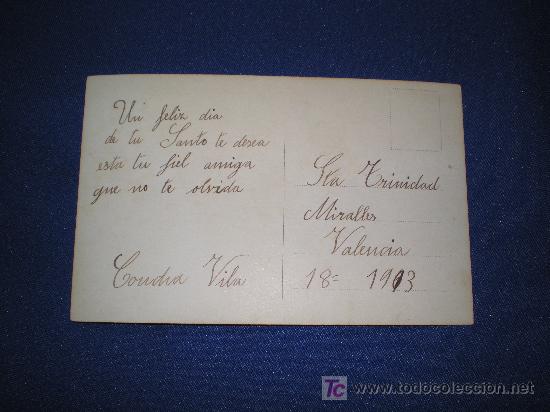 Un feliz dia
de tu Santo te desea
esta tu fiel amiga
que no te olvida
Concha Vila
Sta Trinidad
Miralles
Valencia
18= 1913
todocoleccion
www.todocoleccion.net